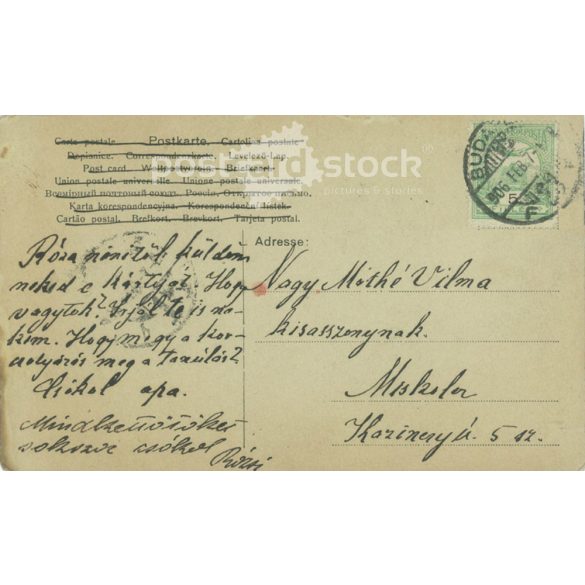 Carte postale. Postkarte. Cartolina postale.
Dopisnice. Correspondenzkarte. Levelező-Lap.
Post card. Weltpostverein. Briefkaart.
Union postale universelle. Unione postale universale.
Karta korespondencyjna. Korespondenční lístek.
Cartão postal. Brefkort. Brevkort. Tarjeta postal.
postcard stock
pictures & stories
BUDAPEST
906 FEB
5
Róza nénitől küldom
neked e kártyát. Hogy
vagytok? írjál te is ne-
kem. Hogy megy a kor-
csolyázás meg a tanulás?
Csókol apa.
Mindkettőtöket
sokszor csókol
Rózsi
Adresse:
Nagy Máthé Vilma
kisasszonynak.
Miskolcz
Kazinczy ú. 5 sz.